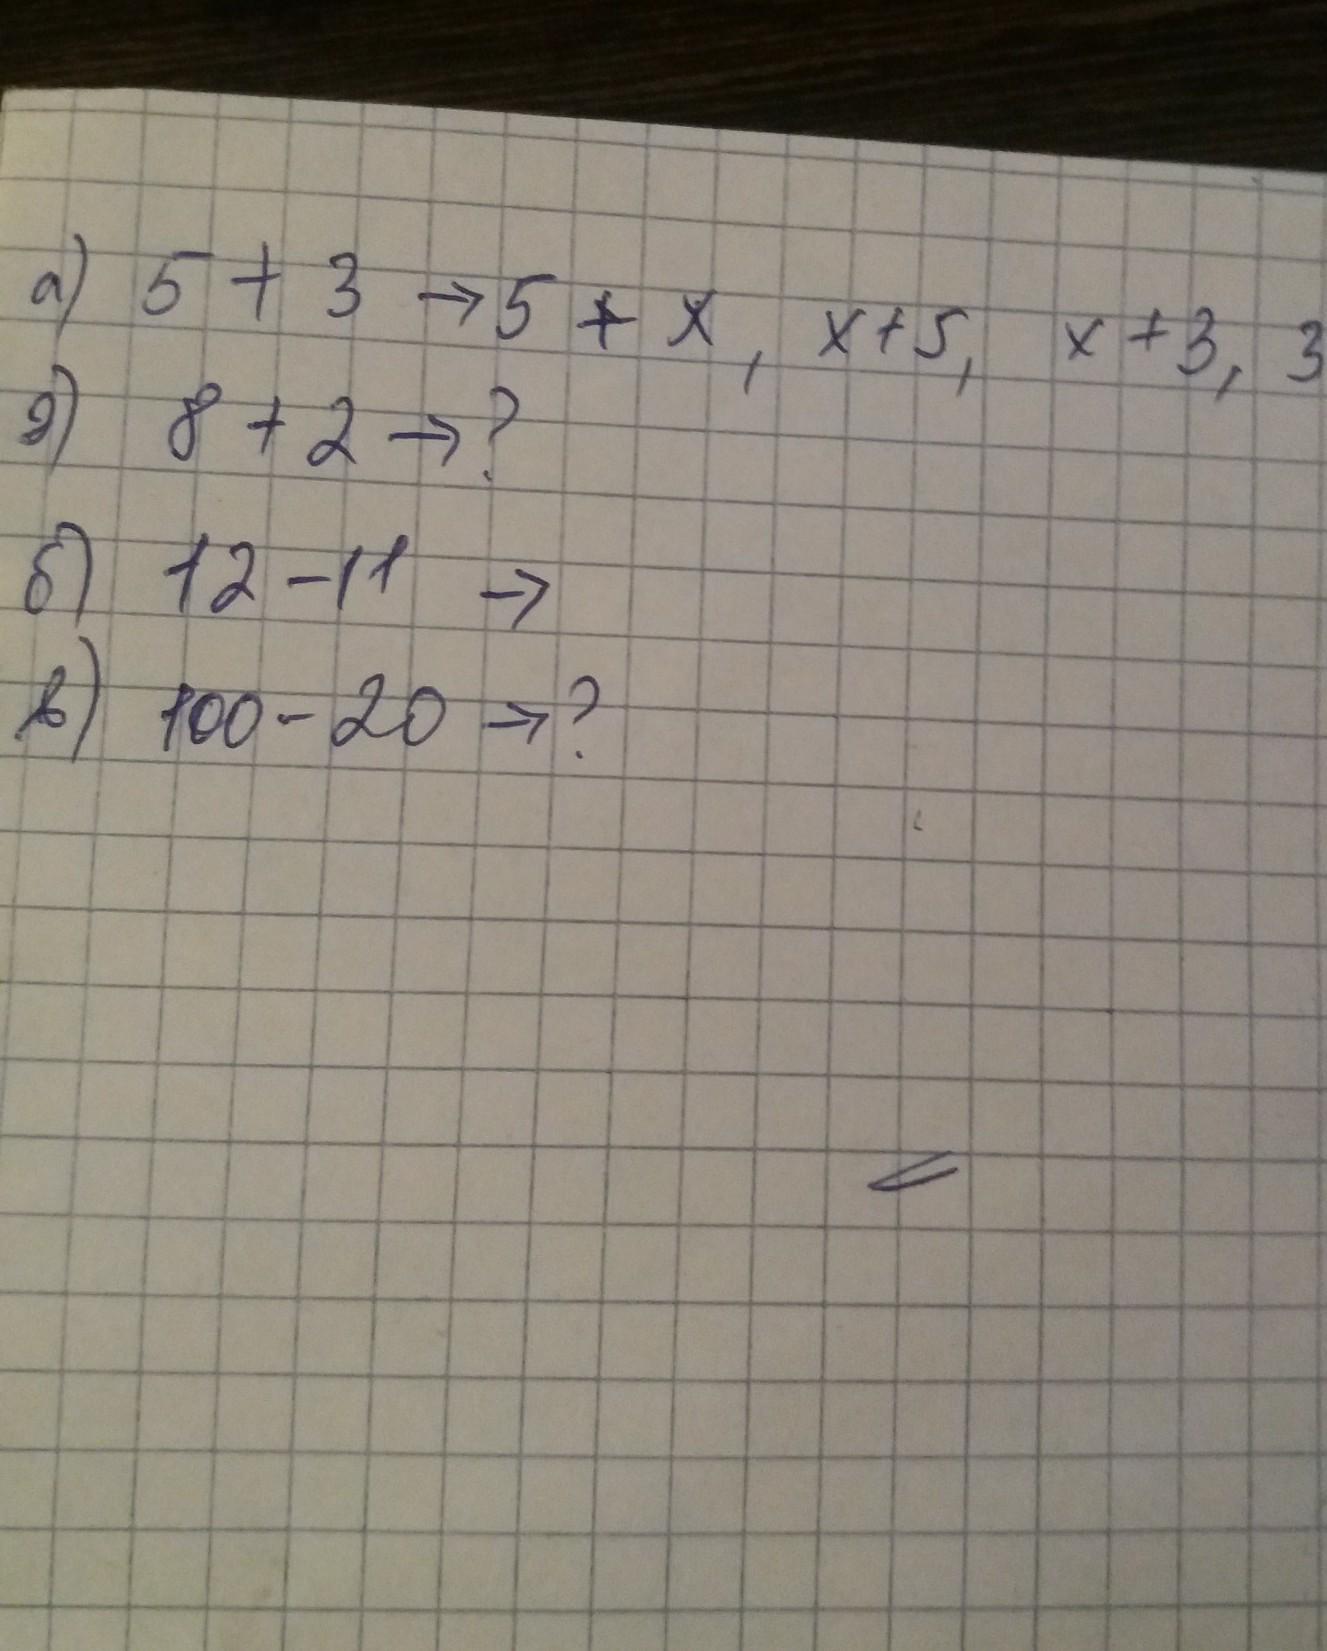 а) 5 + 3 → 5 + x, x + 5, x + 3, 3
д) 8 + 2 → ?
б) 12 - 11 →
в) 100 - 20 → ?